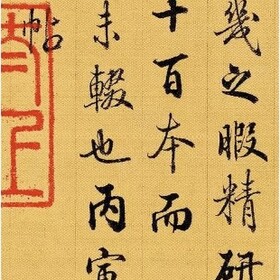 幾之暇精研
十百本而
未輟也丙寅
帖